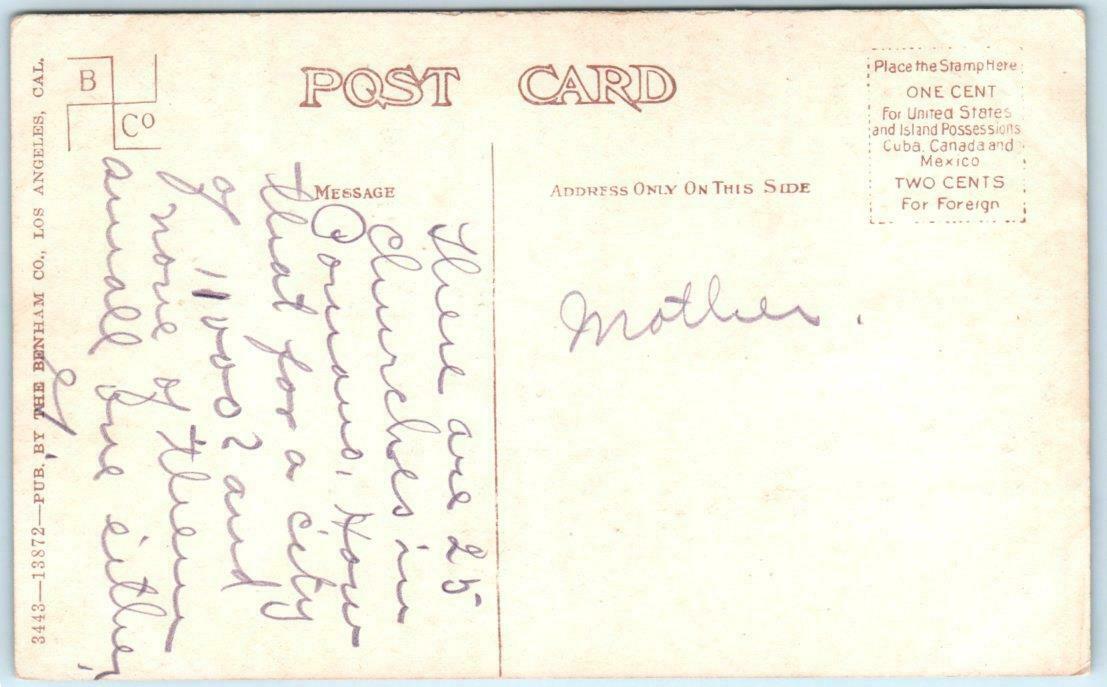 B
Co
POST CARD
Place the Stamp Here
ONE CENT
For United States
and Island Possessions
Cuba, Canada and
Mexico
TWO CENTS
For Foreign
MESSAGE
ADDRESS ONLY ON THIS SIDE
There are 25
Churches in
Pomona. How
that for a city
of 11000? and
none of them
small one either,
Mother.
3443—13872—PUB. BY THE BENHAM CO., LOS ANGELES, CAL.